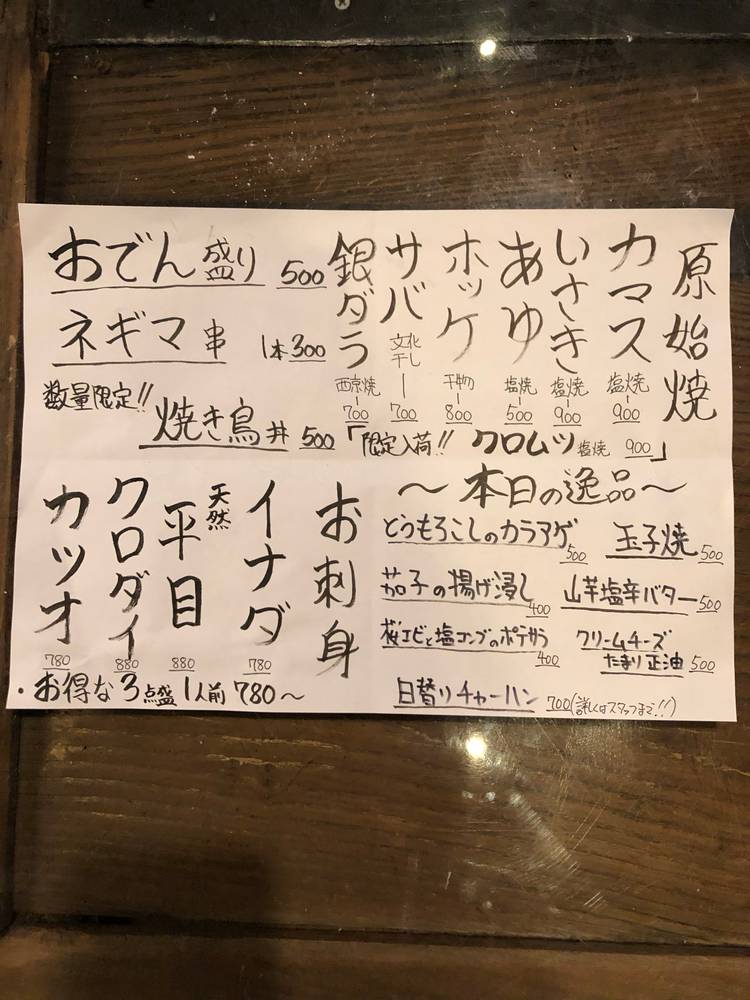 原始焼
カマス 塩焼 900
いさき 塩焼 900
あゆ 塩焼 500
ホッケ 干物 800
サバ 文化干し 700
銀ダラ 西京焼 700
「限定入荷!! クロムツ 塩焼 900」
おでん盛り 500
ネギマ串 1本300
数量限定!!
焼き鳥丼 500
〜本日の逸品〜
とうもろこしのカラアゲ 500
玉子焼 500
茄子の揚げ浸し 400
山芋塩辛バター 500
桜エビと塩コンブのポテサラ 400
クリームチーズ
たまり正油 500
日替りチャーハン 700(詳しくはスタッフまで!!)
お刺身
イナダ 780
天然平目 880
クロダイ 880
カツオ 780
・お得な3点盛1人前780〜